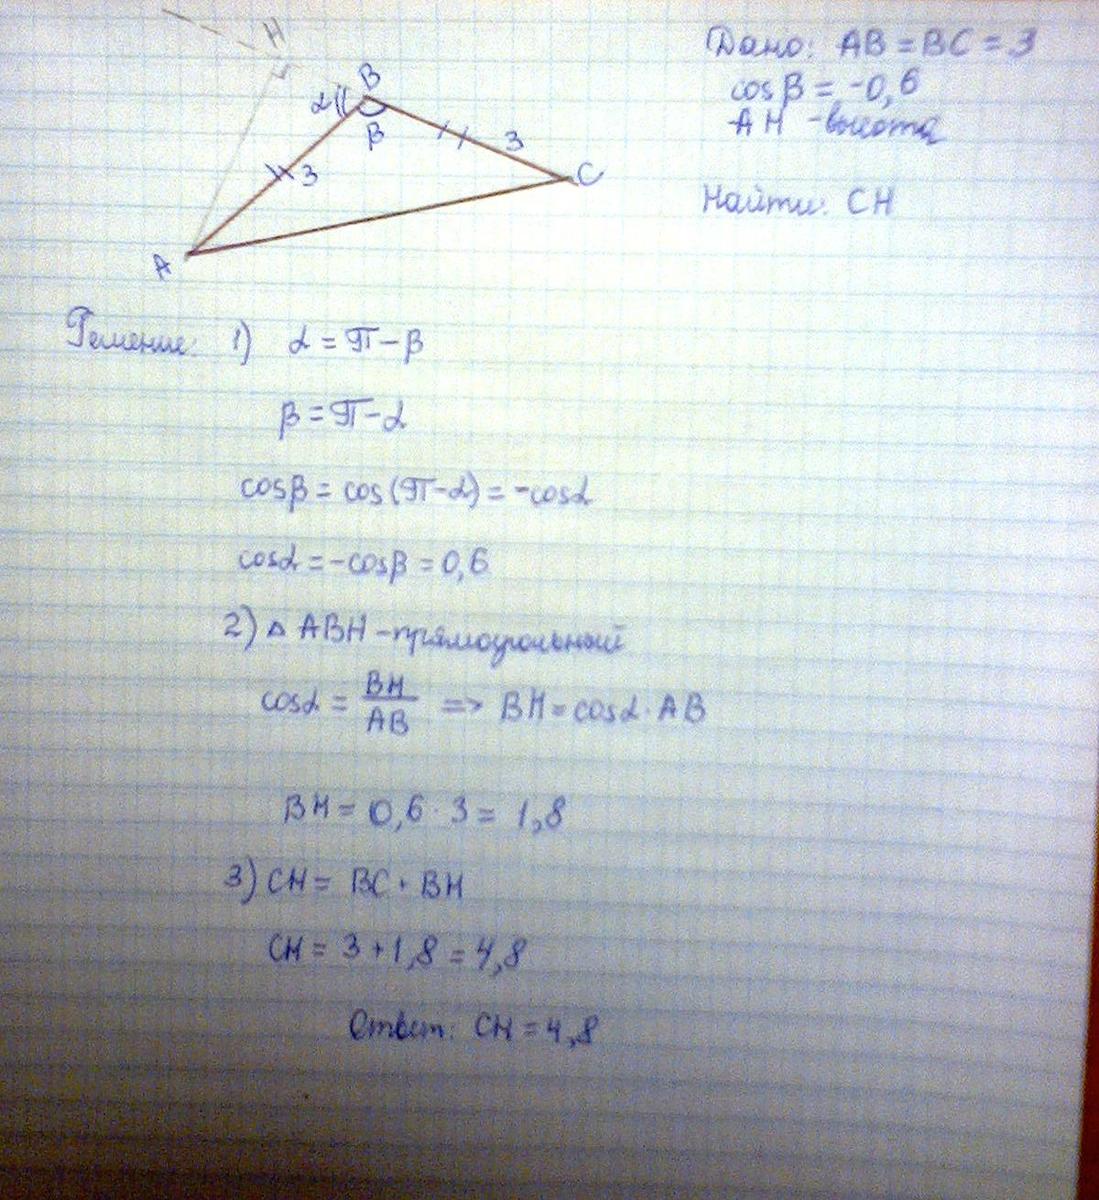 H
B
α
β
3
3
C
A
Дано: AB = BC = 3
cosβ = -0,6
AH - высота
Найти: CH
Решение: 1) α = π - β
β = π - α
cosβ = cos(π - α) = -cosα
cosα = -cosβ = 0,6
2) △ ABH - прямоугольный
cosα = BH/AB => BH = cosα · AB
BH = 0,6 · 3 = 1,8
3) CH = BC + BH
CH = 3 + 1,8 = 4,8
Ответ: CH = 4,8